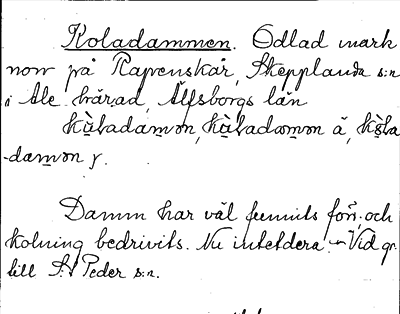 Koladammen. Odlad mark
norr på Ramnenskär, Skepplanda s:n
i Ale härad, Älfsborgs län
kùladamən, kùladamən ä, kola
-damən y.
Damm har väl funnits förr, och
kolning bedrivits. Nu intetdera. Vid gr.
till St Peder s:n.